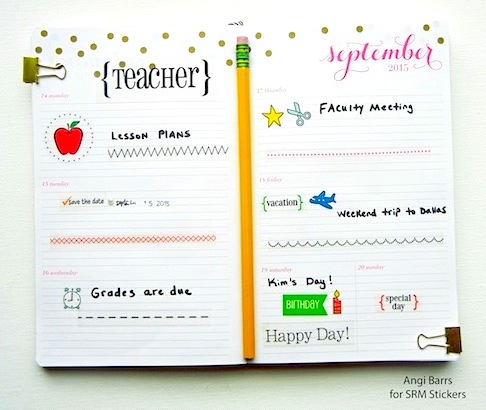 {TEACHER}
september
2015
14 monday
LESSON PLANS
15 tuesday
save the date
15 2015
16 wednesday
Grades are due
17 thursday
FACulty Meeting
18 friday
{vacation}
Weekend trip to Dallas
19 saturday
Kim's Day!
BIRTHDAY
Happy Day!
20 sunday
{special
day}
Angi Barrs
for SRM Stickers